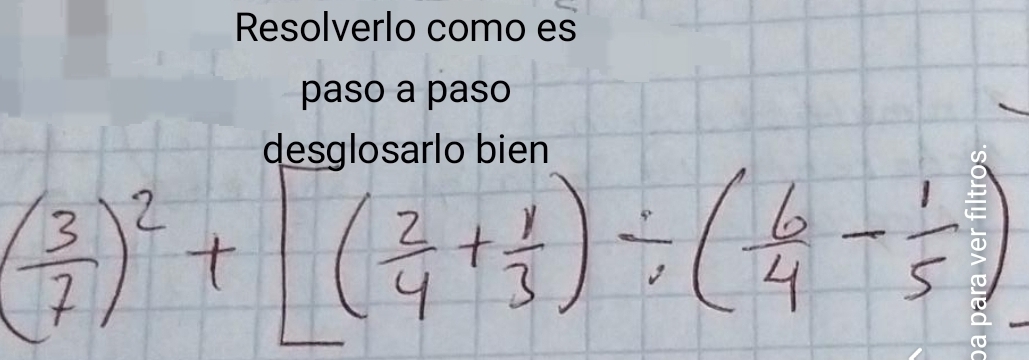 Resolverlo como es
paso a paso
desglosarlo bien
(3/7)² + [(2/4 + 1/3) ÷ (6/4 - 1/5)
pa para ver filtros.